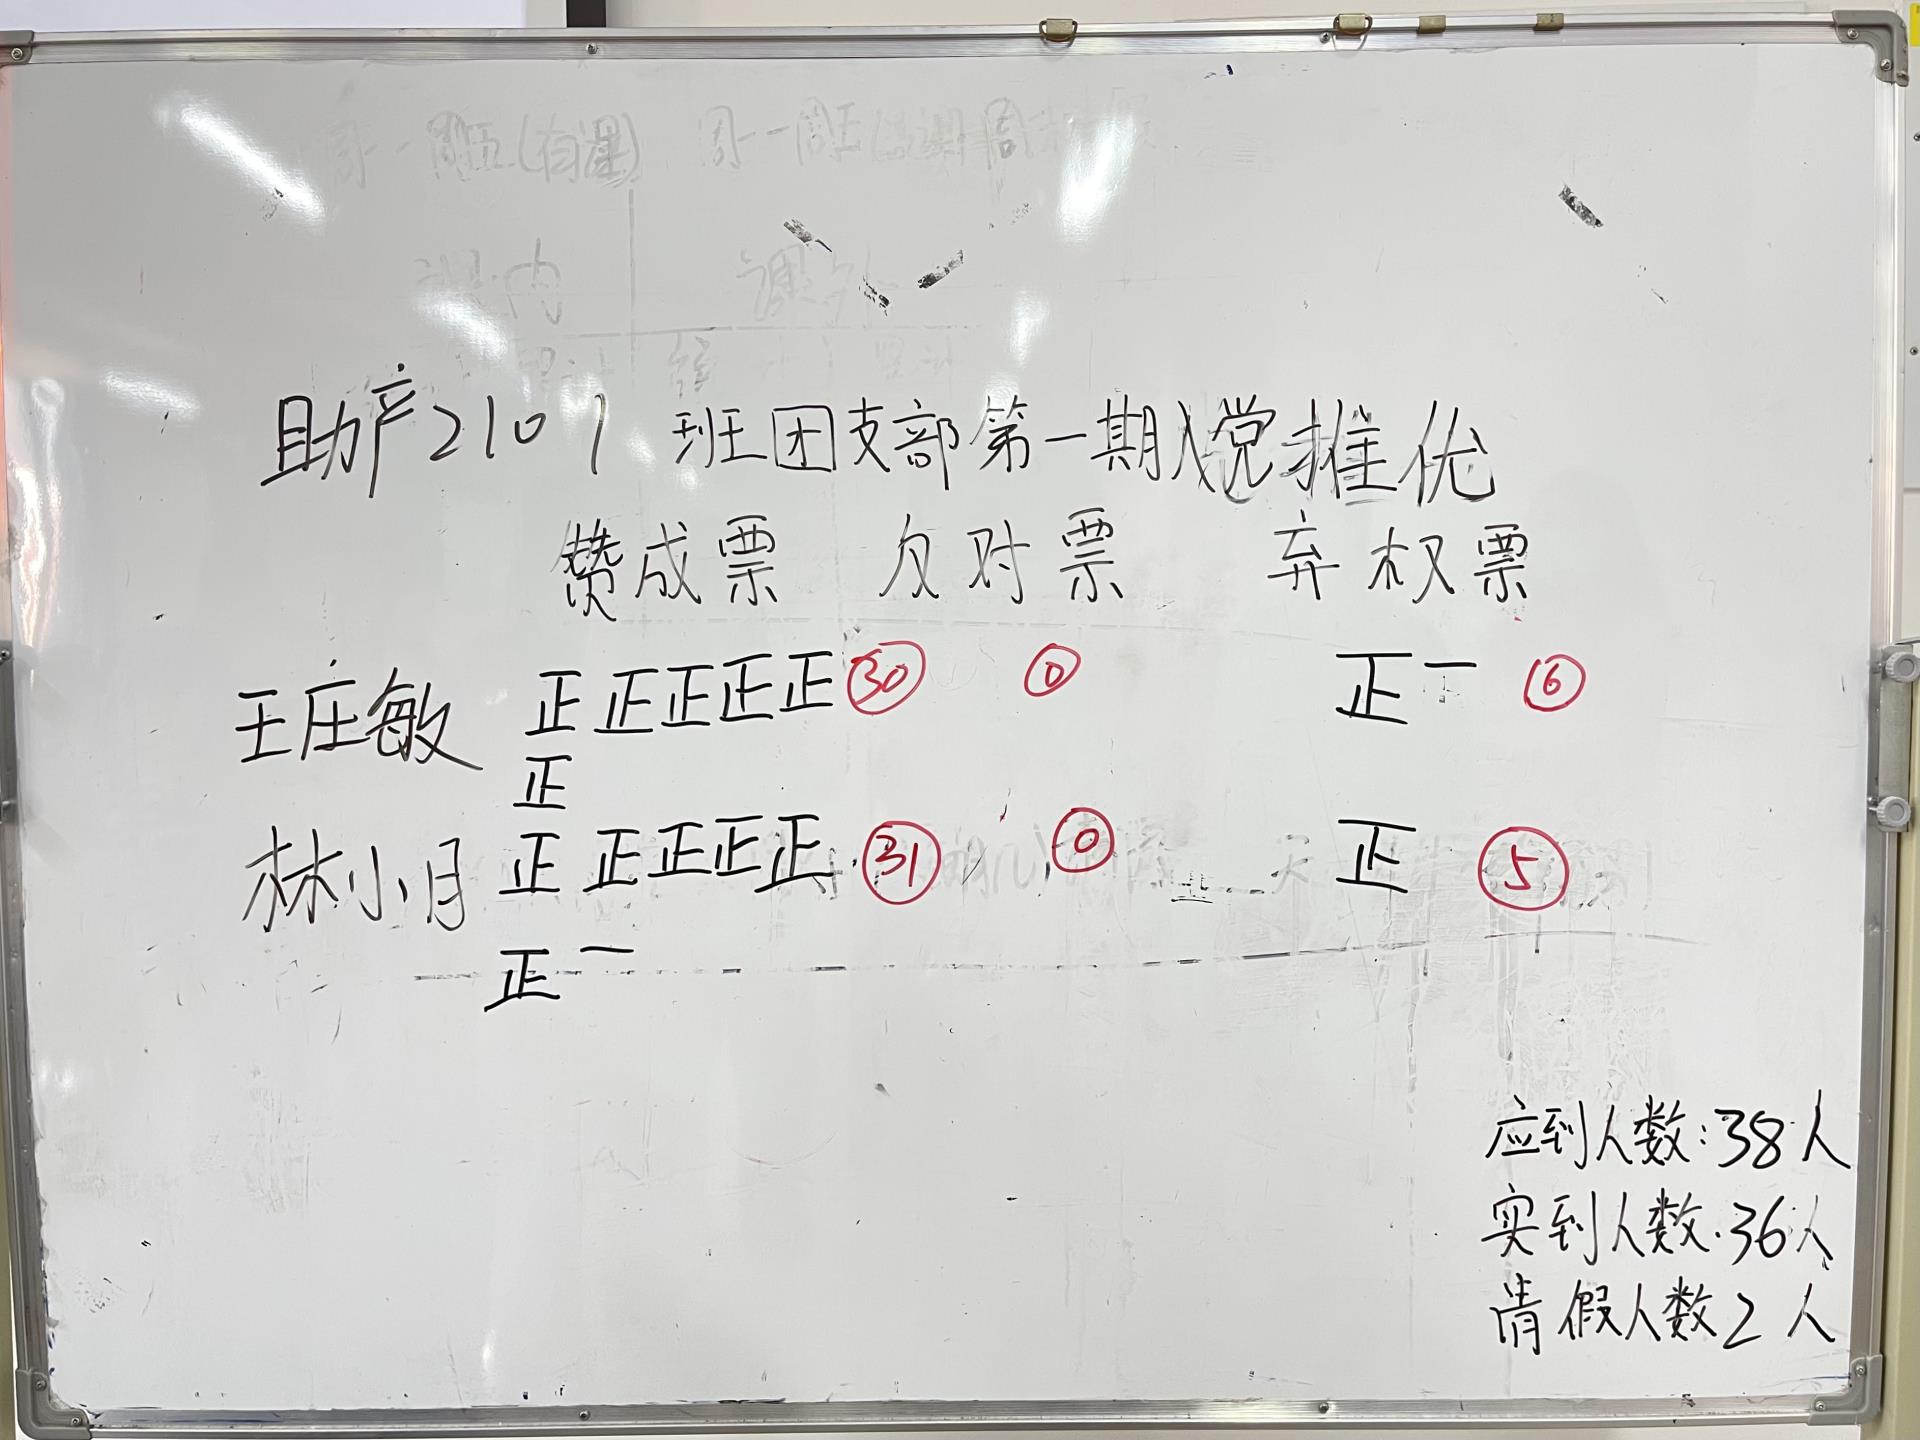 助产2101班团支部第一期入党推优
赞成票 反对票 弃权票
王庄敏 正正正正正 30 0 正一 6
正
林小月 正正正正正 31 0 正 5
正一
应到人数:38人
实到人数.36人
请假人数2人
周一-周五(有课)
课内